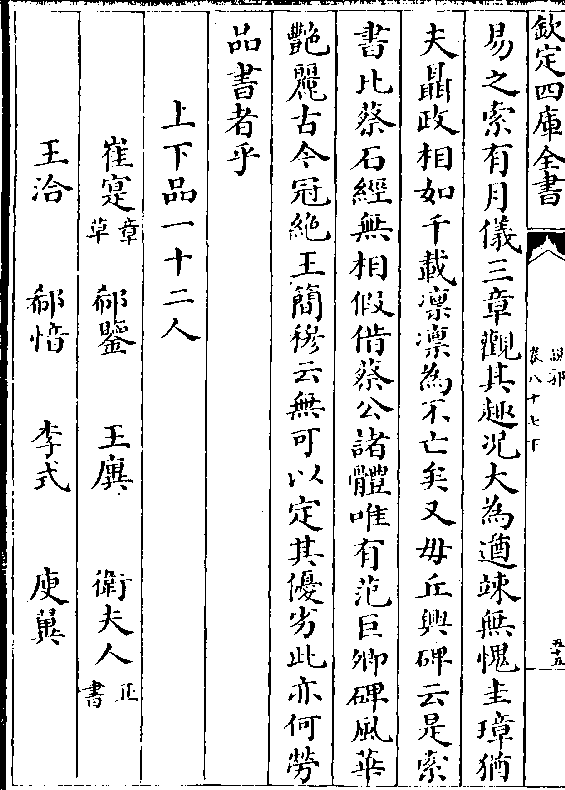 欽定四庫全書
説郛
卷八十七下
五十五
易之索有月儀三章觀其趣況大為遒竦無愧圭璋猶
夫聶政相如千載凛凛為不亡矣又毋丘興碑云是索
書比蔡石經無相假借蔡公諸體唯有范巨卿碑風華
艷麗古今冠絶王簡穆云無可以定其優劣此亦何勞
品書者乎
上下品一十二人
崔寔章草 郗鑒 王廙 衛夫人正書
王洽 郗愔 李式 庾翼